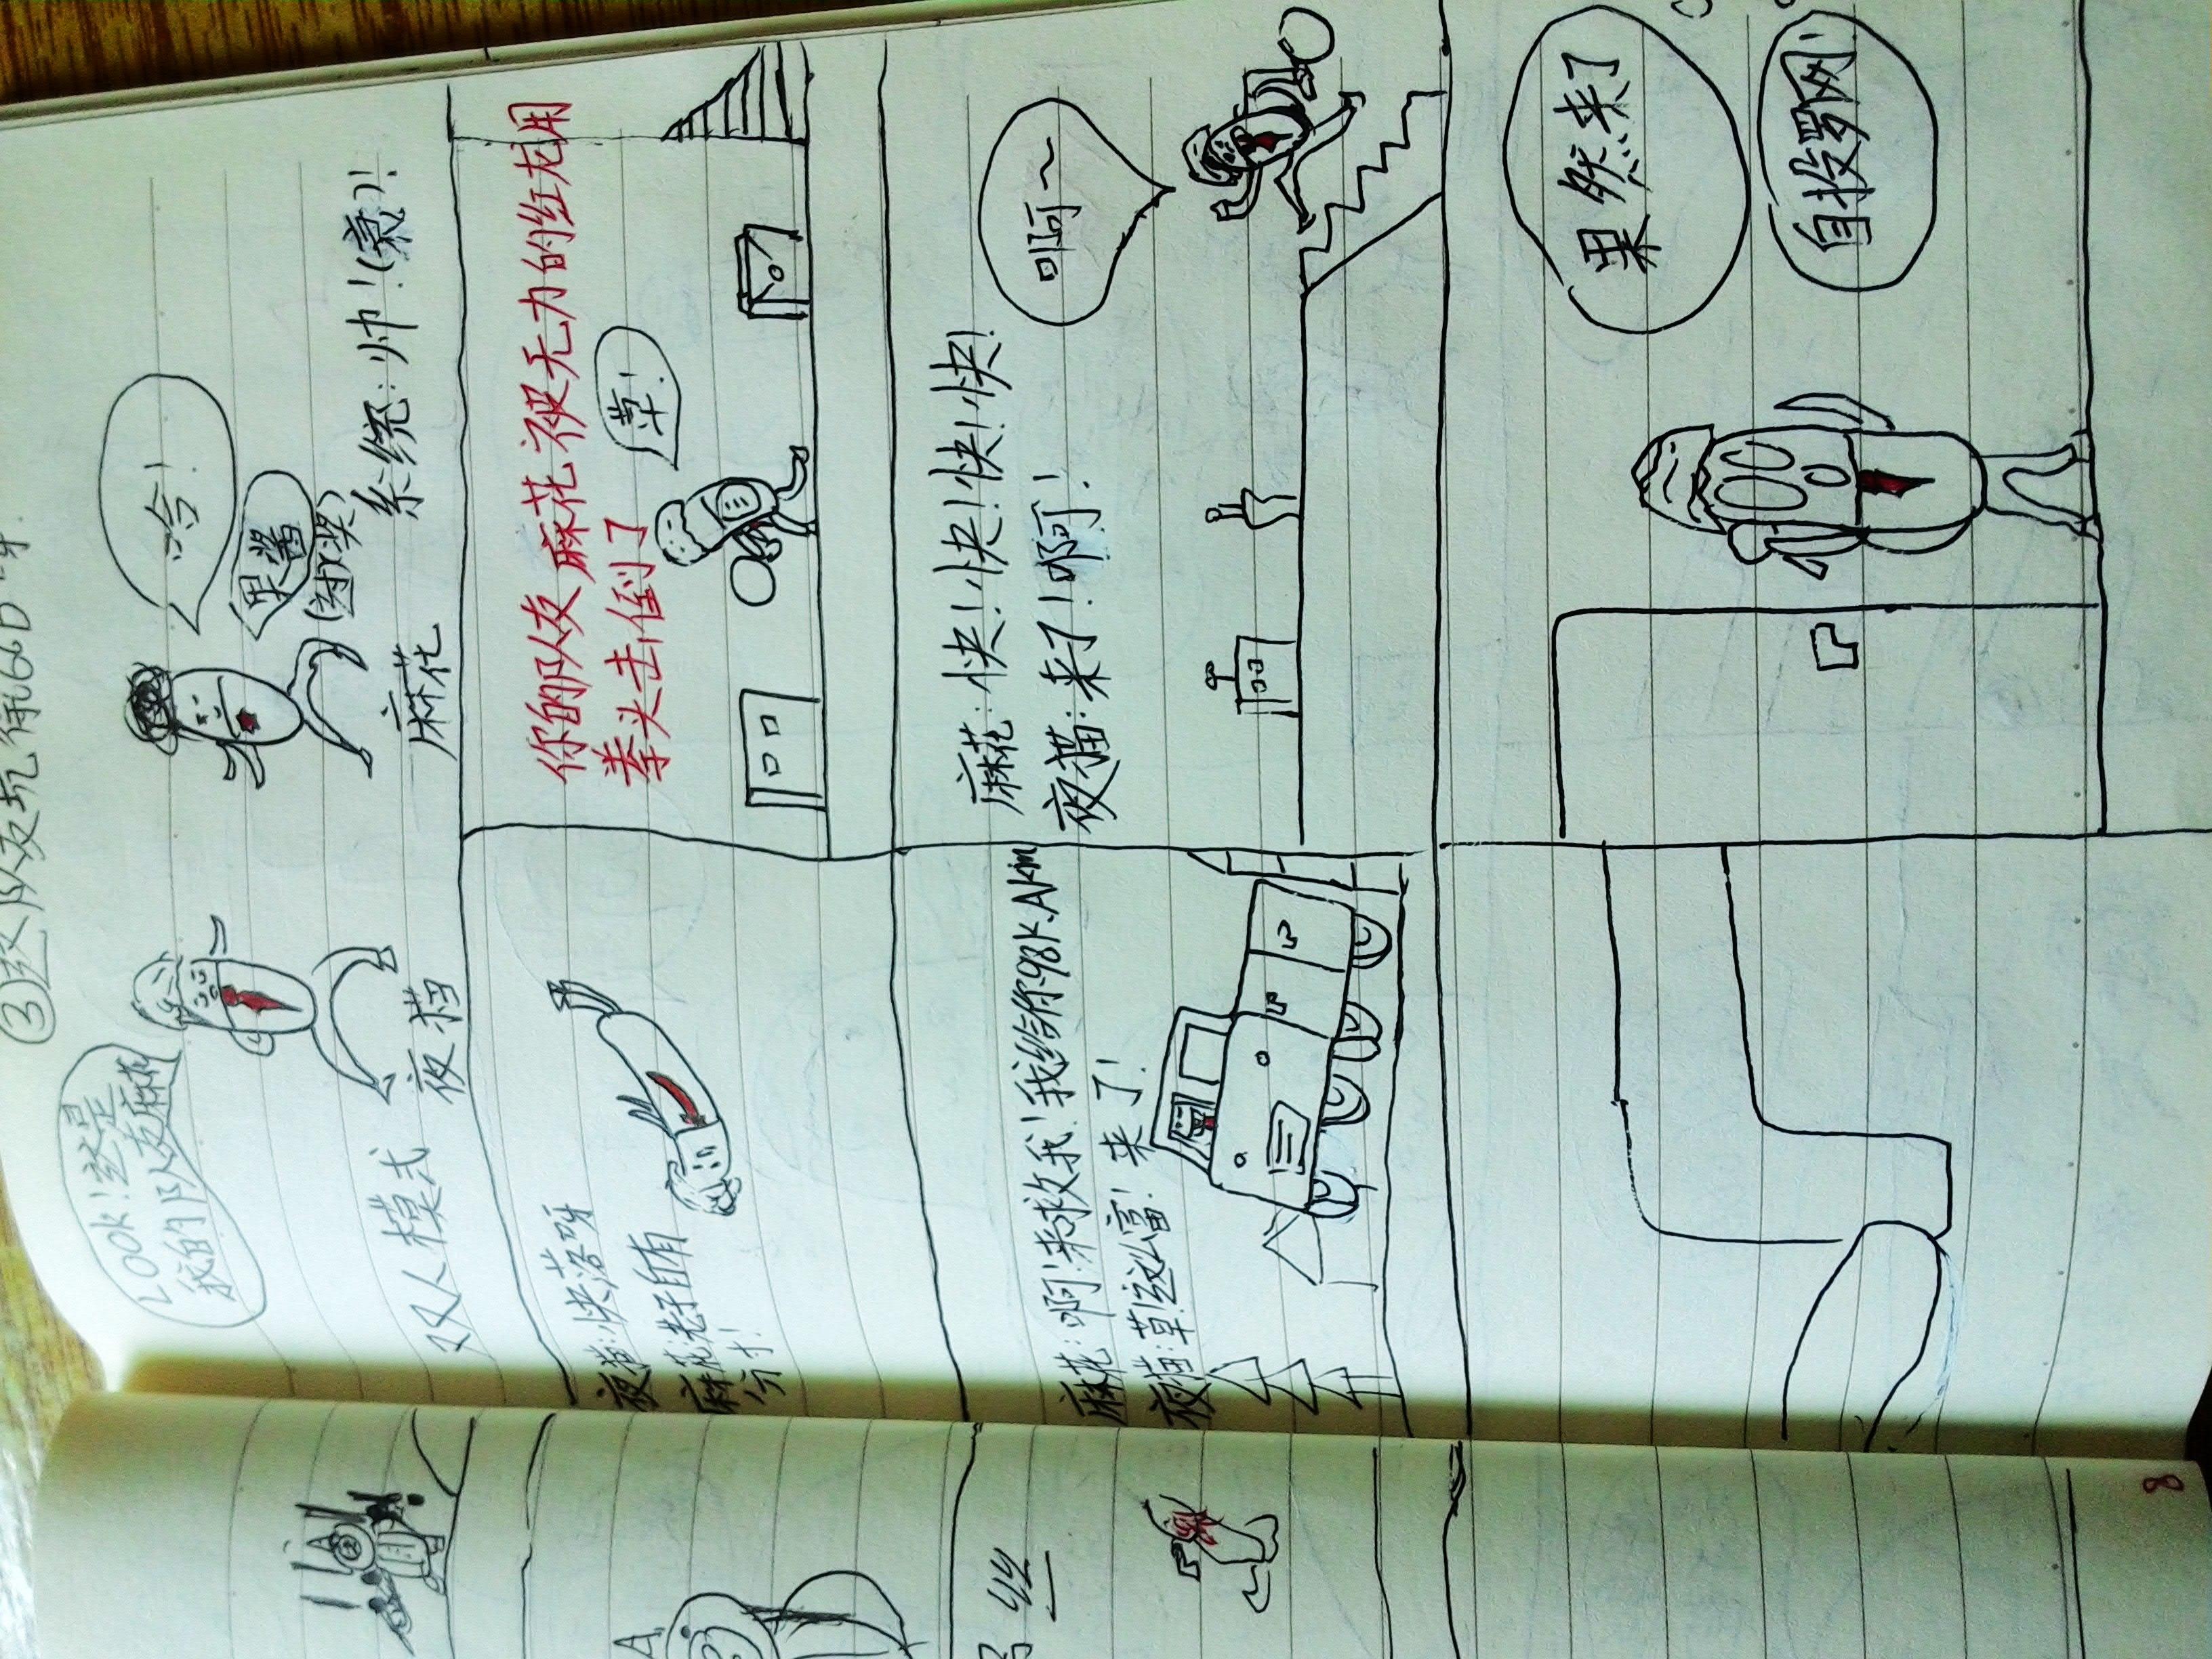 ③这队友坑得666呀.
LOOK!这是
我的队友麻花
哈!
果酱
(过奖)
系统:帅!(衰)!
双人模式
夜猫
麻花
夜猫:快落呀
麻花:老子自有
分寸!
你的队友麻花被无力的红龙用
拳头击倒了
草!
麻花:啊!来救我!我给你98K.AKm
夜猫:草!这么富!来了!
麻花:快!快!快!快!
夜猫:来了!啊!
啊~
果然来了
自投罗网!
8